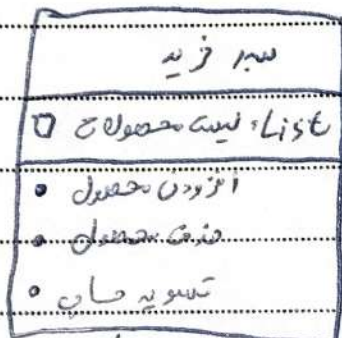 سبد خرید
لیست محصولات: List
افزودن محصول
حذف محصول
تسویه حساب